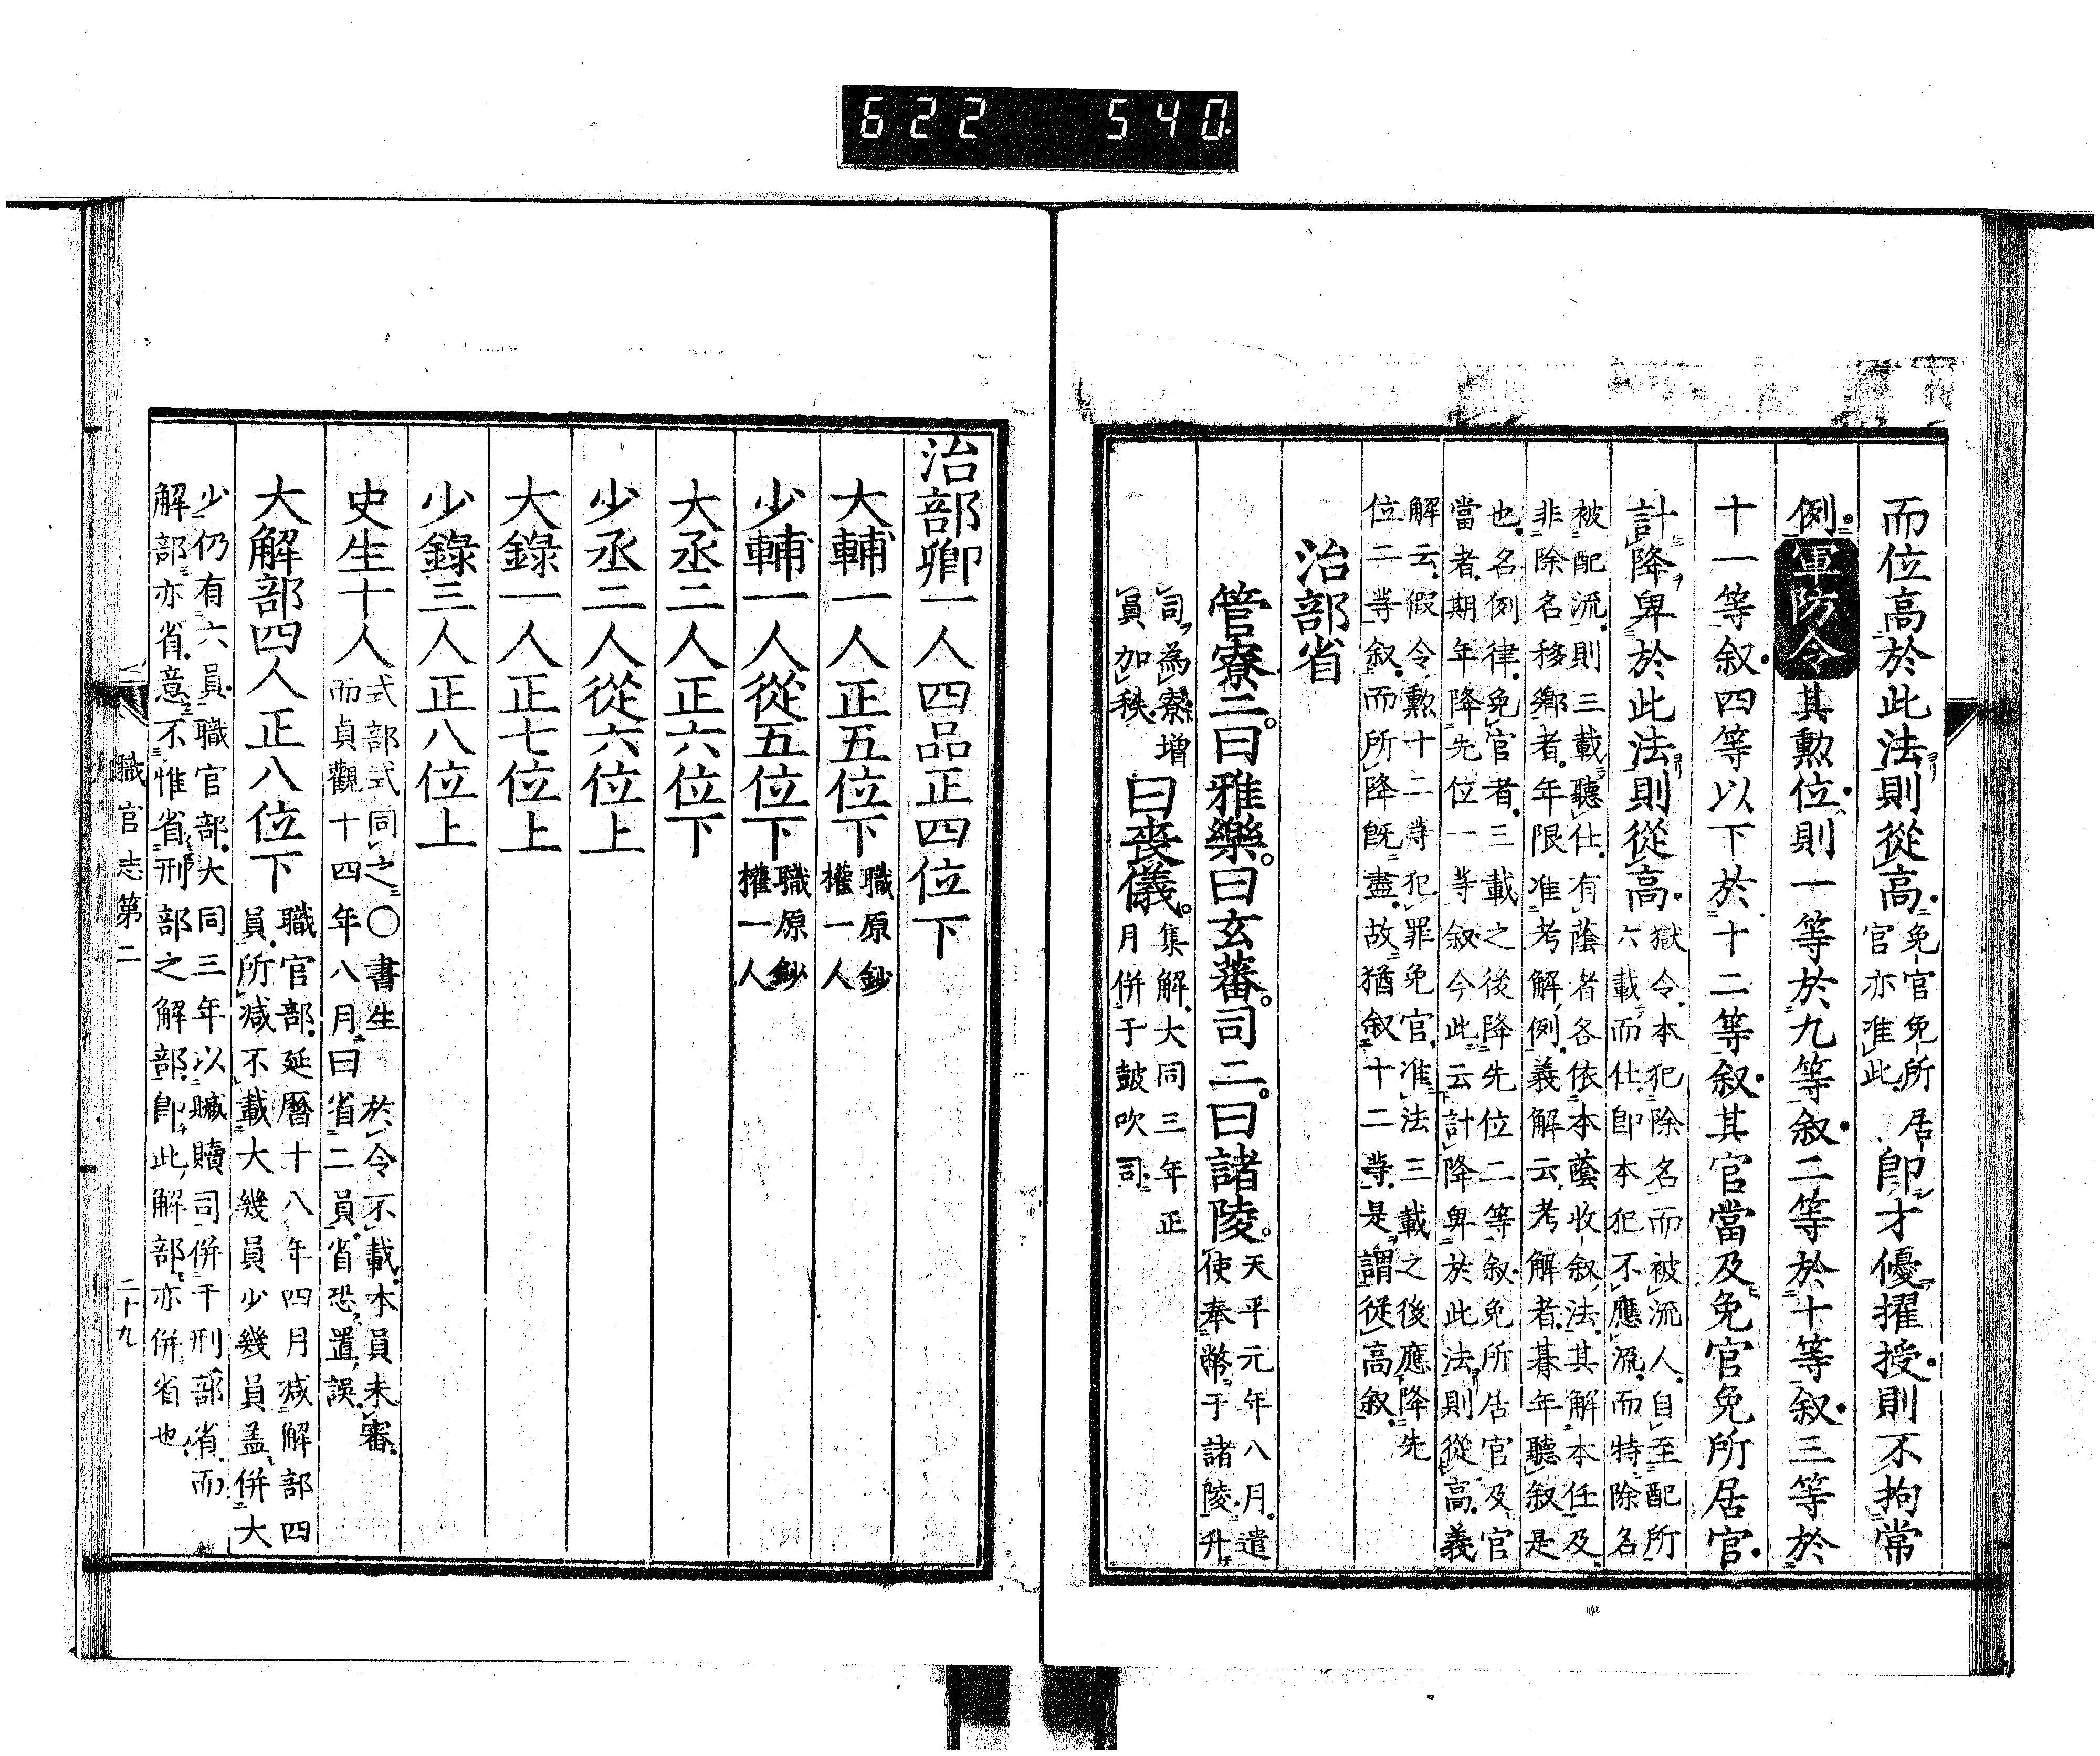 622 540
而位高於此法則從高免官免所居
官亦准此即才優擢授則不拘常
例軍防令其勲位則一等於九等叙二等於十等叙三等於
十一等叙四等以下於十二等叙其官當及免官免所居官
計降卑於此法則從高獄令本犯除名而被流人自至配所
六載而仕即本犯不應流而特除名
被配流則三載聽仕有蔭者各依本蔭收叙法其解本任及
非除名移鄉者年限准考解例義解云考解者朞年聽叙是
也名例律免官者三載之後降先位二等叙免所居官及官
當者期年降先位一等叙今此云計降卑於此法則從高義
解云假令勲十二等犯罪免官准法三載之後應降先
位二等叙而所降旣盡故猶叙十二等是謂從高叙
治部省
管寮二曰雅樂曰玄蕃司二曰諸陵天平元年八月遣
使奉幣于諸陵升
司為寮增
員加秩曰喪儀集解大同三年正
月併于鼓吹司
治部卿一人四品正四位下
大輔一人正五位下職原鈔
權一人
少輔一人從五位下職原鈔
權一人
大丞二人正六位下
少丞二人從六位上
大錄一人正七位上
少錄三人正八位上
史生十人式部式同之〇書生於令不載本員未審
而貞觀十四年八月曰省二員省恐置誤
大解部四人正八位下職官部延曆十八年四月减解部四
員所减不載大幾員少幾員盖併大
少仍有六員職官部大同三年以贓贖司併于刑部省而
解部亦省意不惟省刑部之解部即此解部亦併省也
職官志第二
二十九